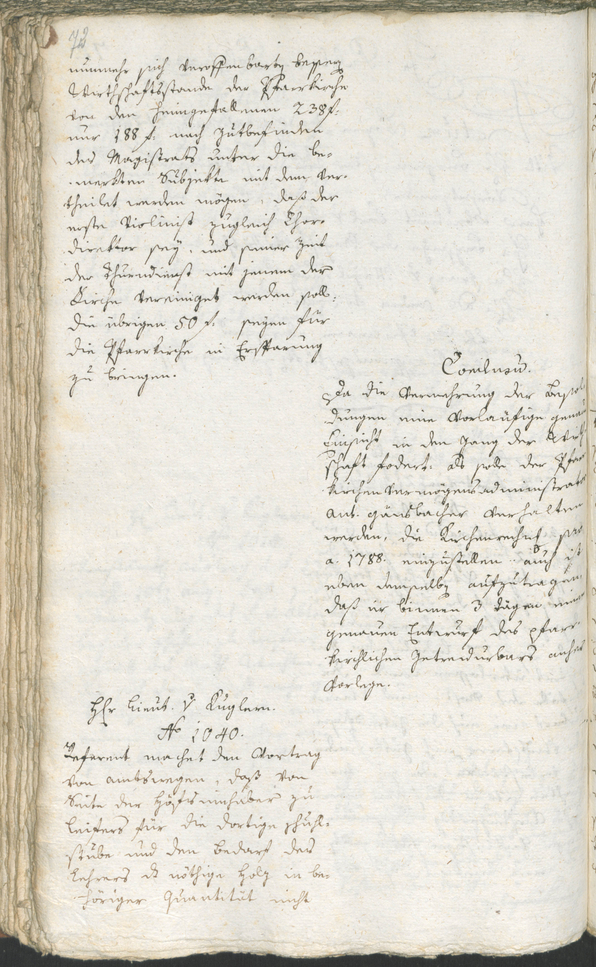 72
nunmehr sich veroffenbarten bessern
Wirthschaftsstande der Pfarrkirche
von den heimgefallenen 238 f:
nur 188 f. nach Gutbefinden
des Magistrats unter die be-
merkten Subjekte mit dem ver-
theilet werden mögen, daß der
erste Violinist zugleich Chor-
direktor sey, und seiner Zeit
der Thurndienst mit jenem der
Kirche vereiniget werden soll,
die übrigen 50 f. seyen für
die Pfarrkirche in Ersparung
zu bringen.
Conclusum.
Da die Vermehrung der Besol-
dungen eine vorläufige genaue
Einsicht in den Gang der Wirth-
schaft fodert: als solle der Pfarr-
kirchenvermögensadministrator
Ant. Gänsbacher verhalten
werden, die Kirchenrechnung pro
a. 1788. einzustellen. auch ist
eben demselben aufzutragen,
daß er binnen 3 Tägen einen
genauen Entwurf des pfarr-
kirchlichen Getreidurbars anher
vorlege.
Hr Lieut. v. Kuglern.
No 1040.
Referent machet den Vortrag
von amtswegen, daß von
Seite der Höfeinnhaber zu
Leifers für die dortige Schuhl-
stube und den Bedarf des
Lehrers das nöthige Holz in be-
höriger Quantität nicht